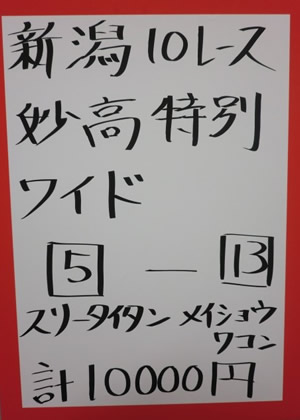 新潟10レース
妙高特別
ワイド
5 — 13
スリータイタン メイショウ
ワコン
計10000円